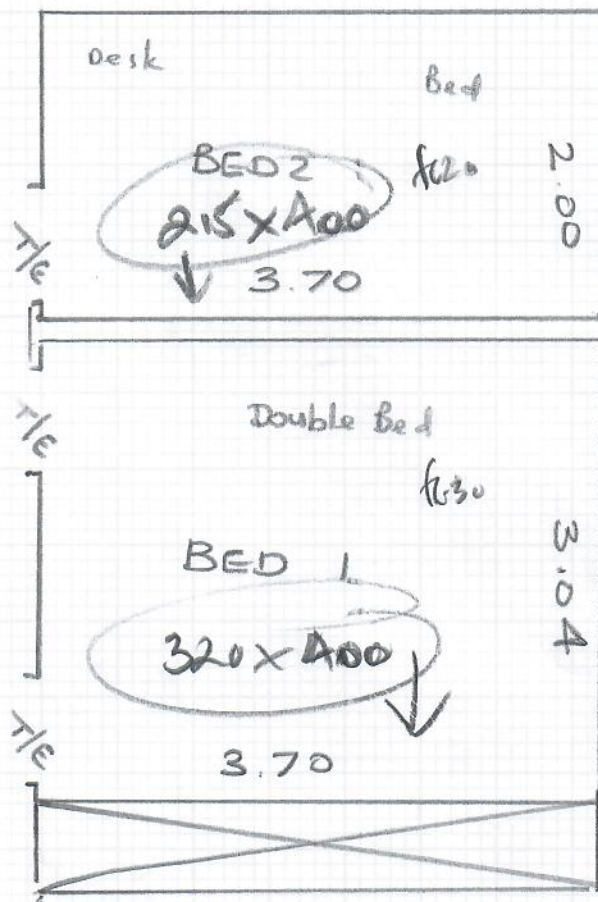 Desk
Bed
BED 2
£620
2.00
215 x 400
T/E
3.70
T/E
Double Bed
£630
BED 1
3.04
320 x 400
T/E
3.70